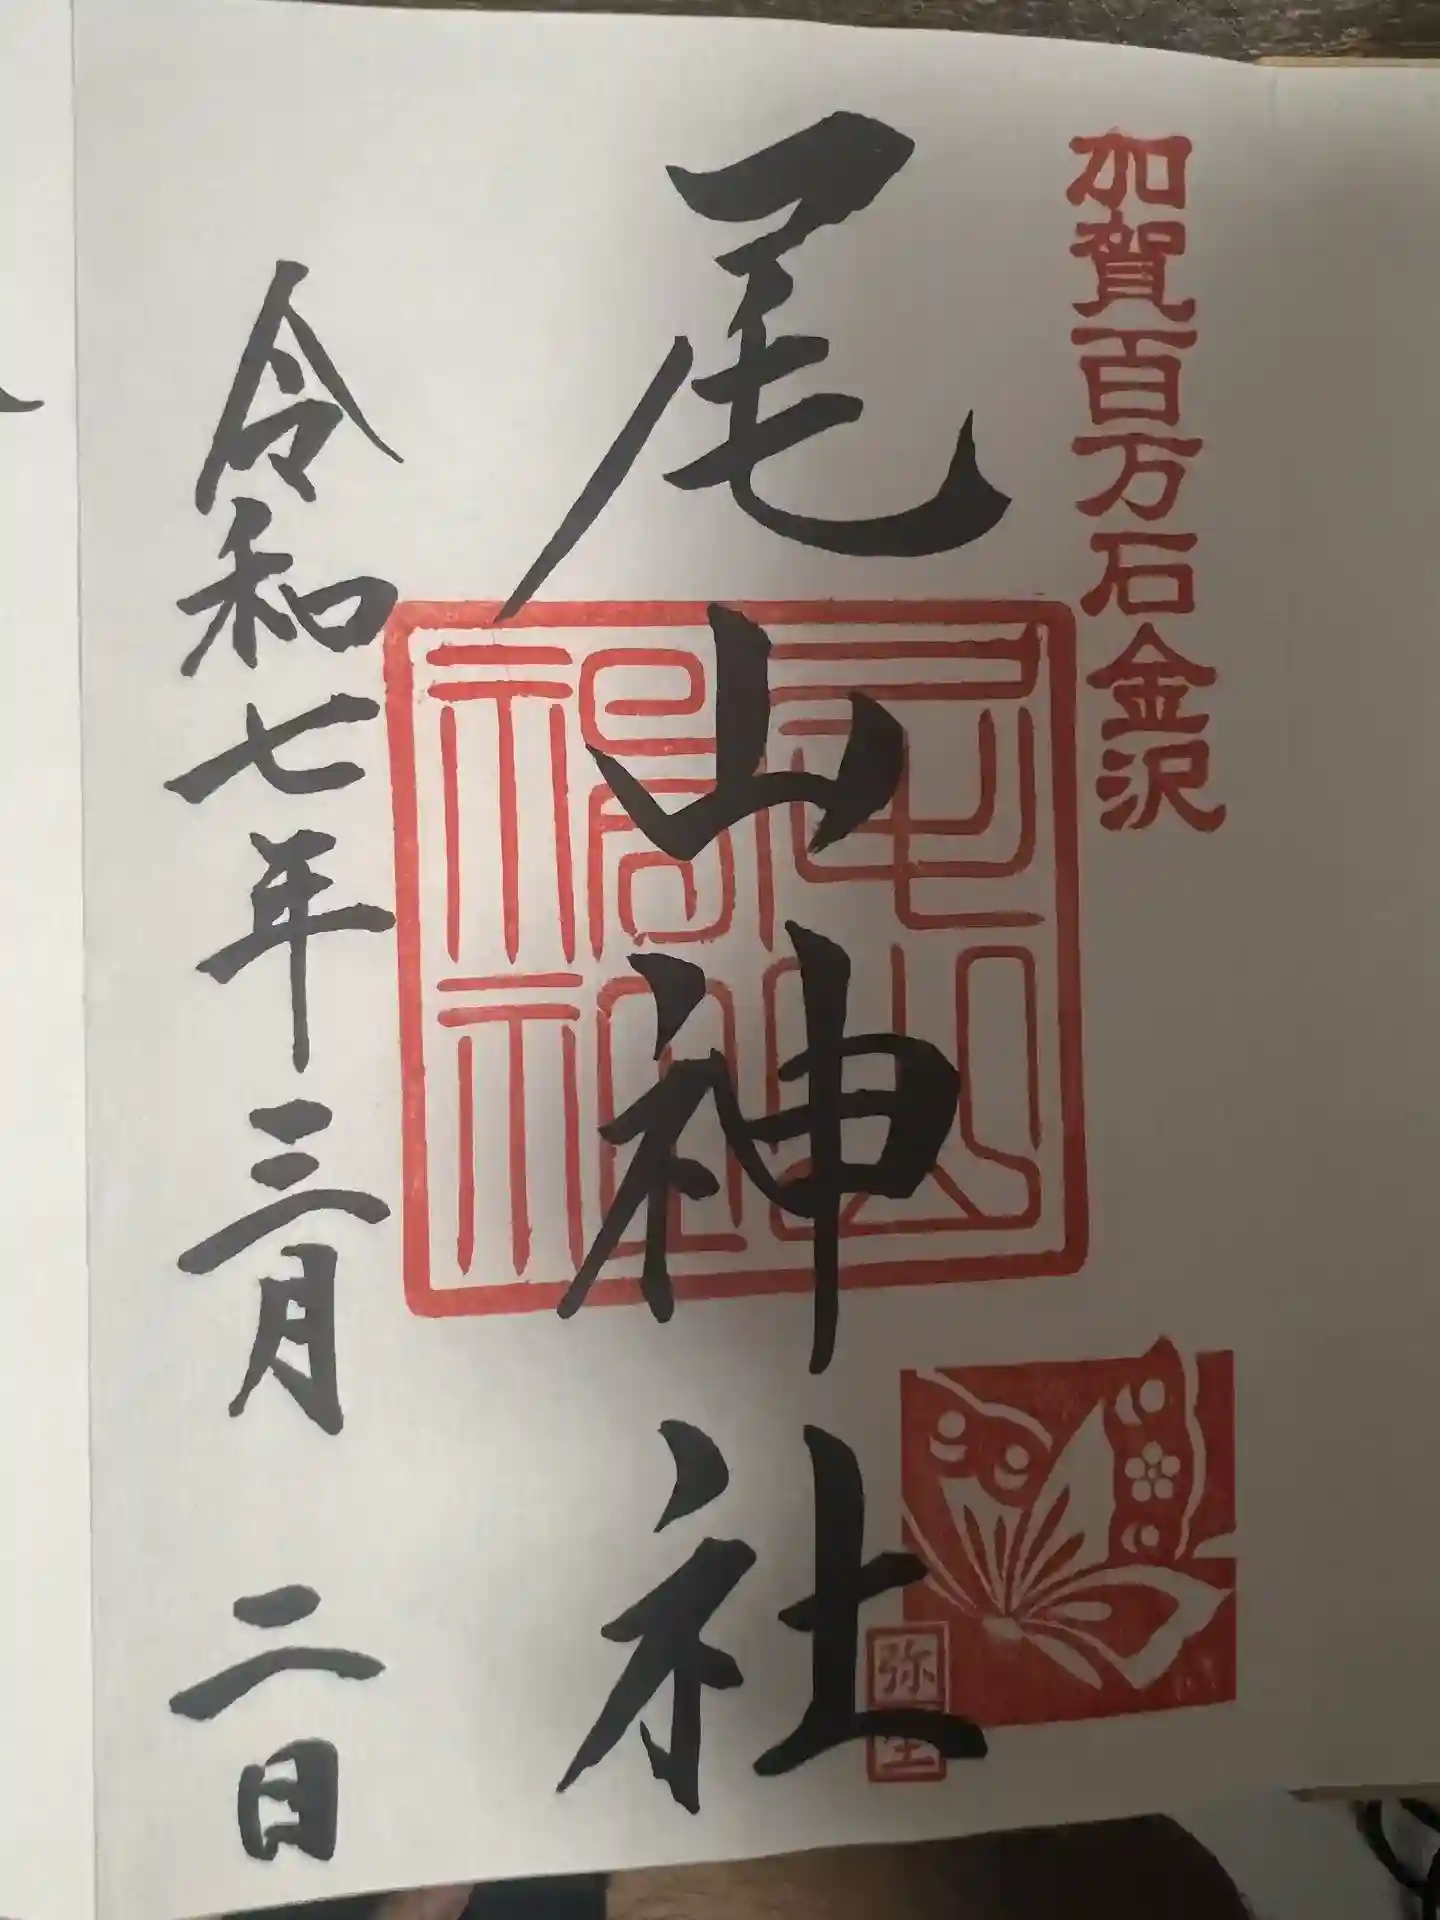 加賀百万石金沢
尾山神社
尾山神社
弥生
令和七年三月二日